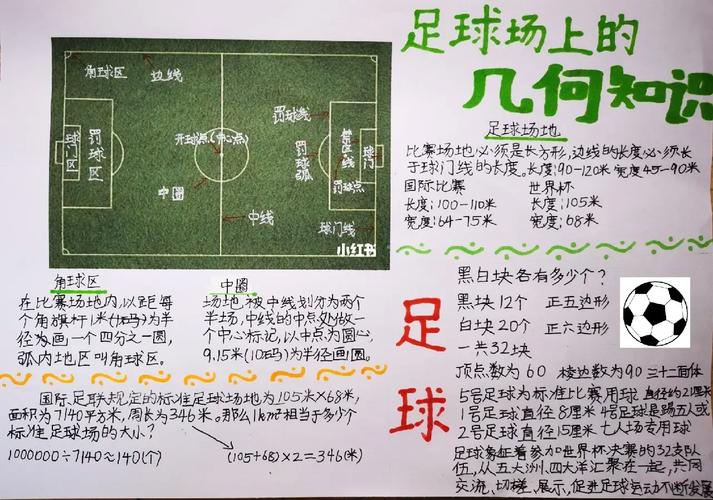 足球场上的
几何知识
角球区
边线
罚球线
开球点(中心点)
球门区
罚球区
罚球弧
禁区线
球门
罚球点
中圈
中线
球门线
小红书
足球场地
比赛场地必须是长方形,边线的长度必须长
于球门线的长度。长度:90-120米 宽度45-90米
国际比赛 世界杯
长度:100-110米 长度:105米
宽度:64-75米 宽度:68米
角球区
在比赛场地内,以距每
个角旗杆1米(1码)为半
径为画一个四分之一圆,
弧内地区叫角球区。
中圈
场地被中线划分为两个
半场,中线的中点处做一
个中心标记,以中点为圆心,
9.15米(10码)为半径画圆。
国际足联规定的标准足球场地为105米×68米,
面积为7140平方米,周长为346米。那么1km²相当于多少个
标准足球场的大小?
1000000÷7140≈140(个)
(105+68)×2=346(米)
足球
黑白块各有多少个?
黑块12个 正五边形
白块20个 正六边形
一共32块
顶点数为60 棱边数为90 三十二面体
5号足球为标准比赛用球 直径约21厘米
1号足球直径8厘米 4号足球是踢五人或
2号足球直径15厘米 七人场专用球
足球象征着参加世界杯决赛的32支队
伍,从五大洲、四大洋汇聚在一起,共同
交流、切磋、展示、促进足球运动不断发展